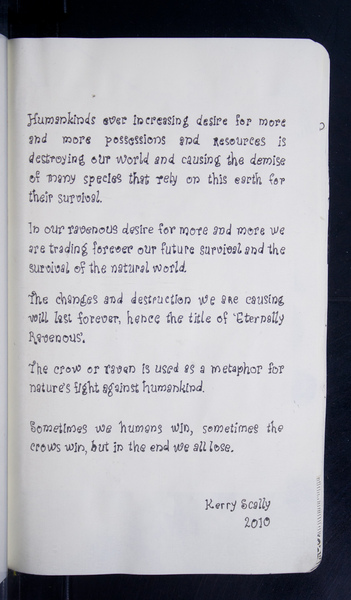 Humankinds ever increasing desire for more
and more possessions and Resources is
destroying our world and causing the demise
of many species that rely on this earth for
their survival.
In our ravenous desire for more and more we
are trading forever our future survival and the
survival of the natural world.
The changes and destruction we are causing
will last forever, hence the title of 'Eternally
Ravenous'.
The crow or raven is used as a metaphor for
nature's fight against humankind.
Sometimes we humans win, sometimes the
crows win, but in the end we all lose.
Kerry Scally
2010